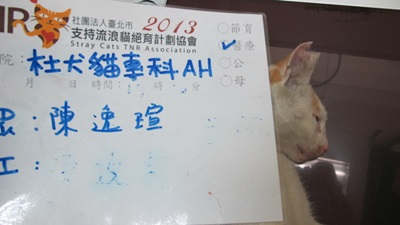 社團法人臺北市 2013
支持流浪貓絕育計劃協會
Stray Cats TNR Association
○節育
醫療
○公
○母
院：杜犬貓專科AH
月 日時間： 時 分
：陳逸瑄
工：